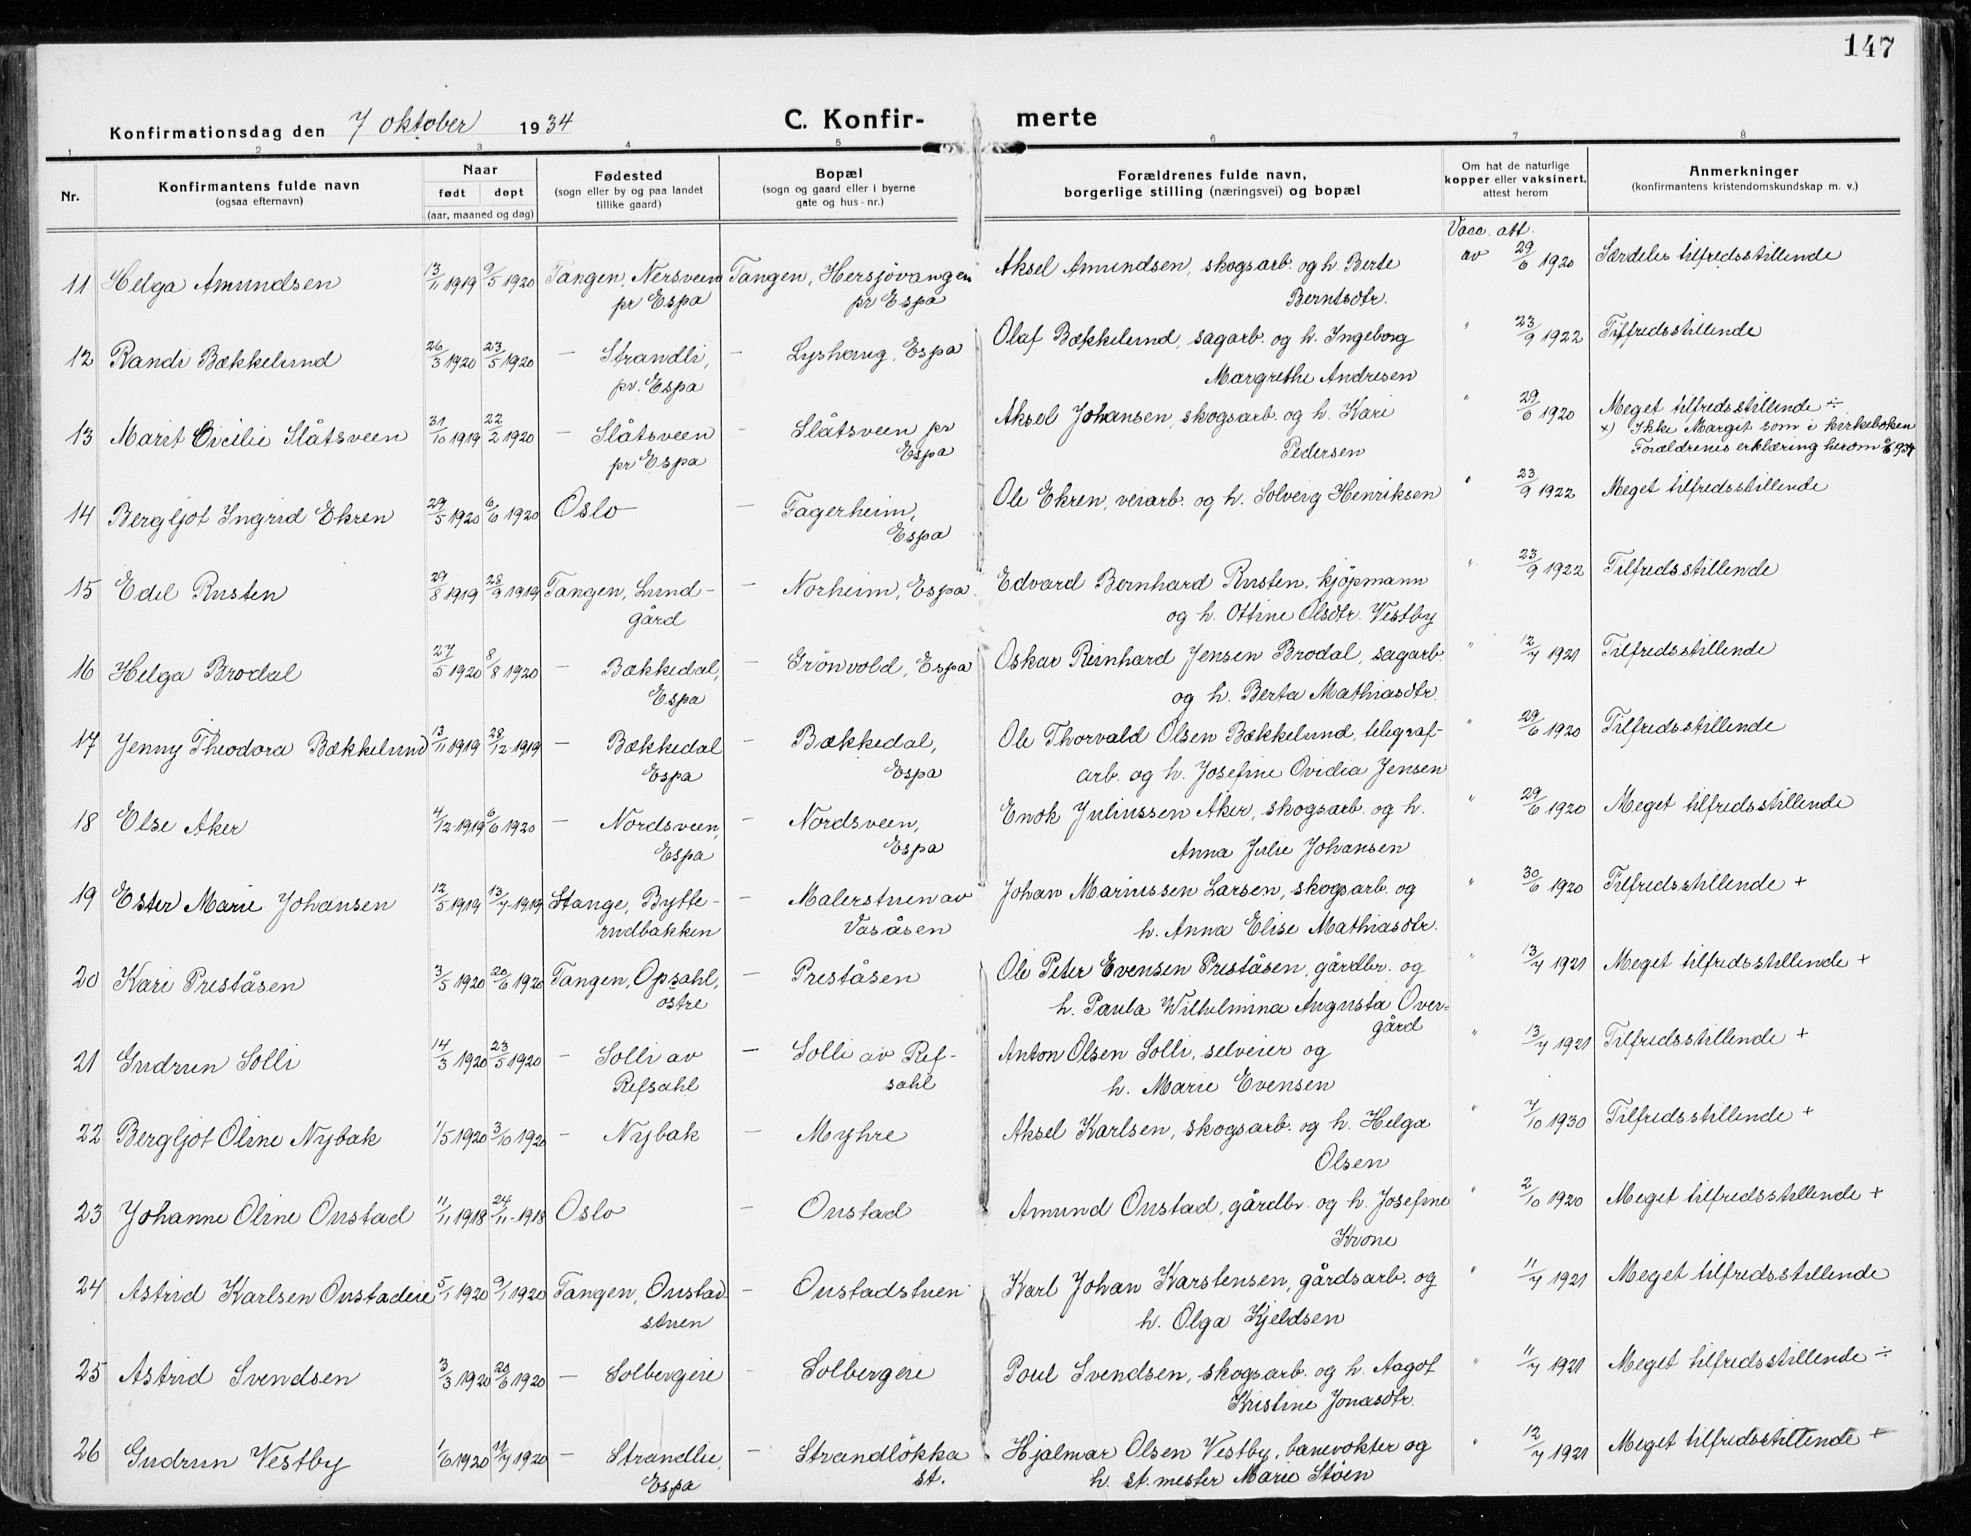 147
Konfirmationsdag den 7 oktober 1934
C. Konfir- merte
1 2 3 4 5 6 7 8
Nr.
Konfirmantens fulde navn
(ogsaa efternavn)
Naar
født døpt
(aar, maaned og dag)
Fødested
(sogn eller by og paa landet
tillike gaard)
Bopæl
(sogn og gaard eller i byerne
gate og hus-nr.)
Forældrenes fulde navn,
borgerlige stilling (næringsvei) og bopæl
Om hat de naturlige
kopper eller vaksinert,
attest herom
Anmerkninger
(konfirmantens kristendomskundskap m. v.)
Vacc. att.
11 Helga Amundsen 13/11 1919 9/5 1920 Tangen, Nersveen Tangen, Hersjøvangen Aksel Amundsen, skogsarb. og h. Berte av 29/6 1920 Særdeles tilfredsstillende
pr Espa pr Espa Berntsdtr.
12 Randi Bækkelund 26/3 1920 23/5 1920 — Strandli, — Lyshaug, Espa Olaf Bækkelund, sagarb. og h. Ingeborg " 23/9 1922 Tilfredsstillende
pr. Espa Margrethe Andresen
13 Marit Cicilie Slåtsveen 31/10 1919 22/2 1920 — Slåtsveen — Slåtsveen pr Aksel Johansen, skogsarb. og h. Kari " 29/6 1920 Meget tilfredsstillende ÷
pr Espa Espa Pedersen x) Ikke Margit som i kirkeboken
Forældrenes erklæring herom
14 Bergljot Ingrid Ekren 29/5 1920 6/6 1920 Oslo — Fagerheim, Ole Ekren, veiarb. og h. Solveig Henriksen " 23/9 1922 Meget tilfredsstillende
Espa
15 Edel Rusten 29/8 1919 28/9 1919 Tangen, Lund- — Norheim, Espa Edvard Bernhard Rusten, kjøpmann " 23/9 1922 Tilfredsstillende
gård og h. Ottine Olsdtr. Vestby
16 Helga Brodal 27/5 1920 8/8 1920 — Bækkedal, — Grönvold, Espa Oskar Reinhard Jensen Brodal, sagarb. " 12/7 1921 Tilfredsstillende
Espa og h. Berta Mathiasdtr.
17 Jenny Theodora Bækkelund 13/11 1919 28/12 1919 — Bækkedal — Bækkedal, Ole Thorvald Olsen Bækkelund, telegraf- " 29/6 1920 Tilfredsstillende
Espa Espa arb. og h. Josefine Ovidia Jensen
18 Else Aker 4/12 1919 6/6 1920 — Nordsveen, — Nordsveen, Enok Juliussen Aker, skogsarb. og h. " 29/6 1920 Meget tilfredsstillende
Espa Espa Anna Julie Johansen
19 Ester Marie Johansen 12/5 1919 13/7 1919 Stange, Bytte- — Malerstuen av Johan Mariussen Larsen, skogsarb. og " 30/6 1920 Tilfredsstillende +
rudbakken Vasåsen h. Anna Elise Mathiasdtr.
20 Kari Preståsen 3/5 1920 20/6 1920 Tangen, Opsahl, — Preståsen Ole Peter Evensen Preståsen, gårdbr. og " 13/7 1921 Meget tilfredsstillende +
östre h. Paula Wilhelmina Augusta Over-
gård
21 Gudrun Solli 14/3 1920 23/5 1920 — Solli av — Solli av Ref- Anton Olsen Solli, selveier og " 13/7 1921 Tilfredsstillende +
Refsahl sahl h. Marie Evensen
22 Bergljot Oline Nybak 1/5 1920 3/10 1920 — Nybak — Myhre Aksel Karlsen, skogsarb. og h. Helga " 7/10 1930 Tilfredsstillende +
Olsen
23 Johanne Oline Onstad 11/11 1918 24/11 1918 Oslo — Onstad Amund Onstad, gårdbr. og h. Josefine " 2/10 1920 Meget tilfredsstillende +
Krone
24 Astrid Karlsen Onstadeie 5/1 1920 9/1 1920 Tangen, Onstad — Onstadstuen Karl Johan Karstensen, gårdsarb. og " 11/7 1921 Meget tilfredsstillende
stuen h. Olga Kjeldsen
25 Astrid Svendsen 3/3 1920 20/6 1920 — Solbergeie — Solbergeie Poul Svendsen, skogsarb. og h. Aagot " 11/7 1921 Meget tilfredsstillende ÷
Kristine Jonasdtr.
26 Gudrun Vestby 1/6 1920 11/7 1920 — Strandlie, — Strandløkka Hjalmar Olsen Vestby, banevokter og " 12/7 1921 Meget tilfredsstillende +
Espa st. h. st. mester Marie Støen